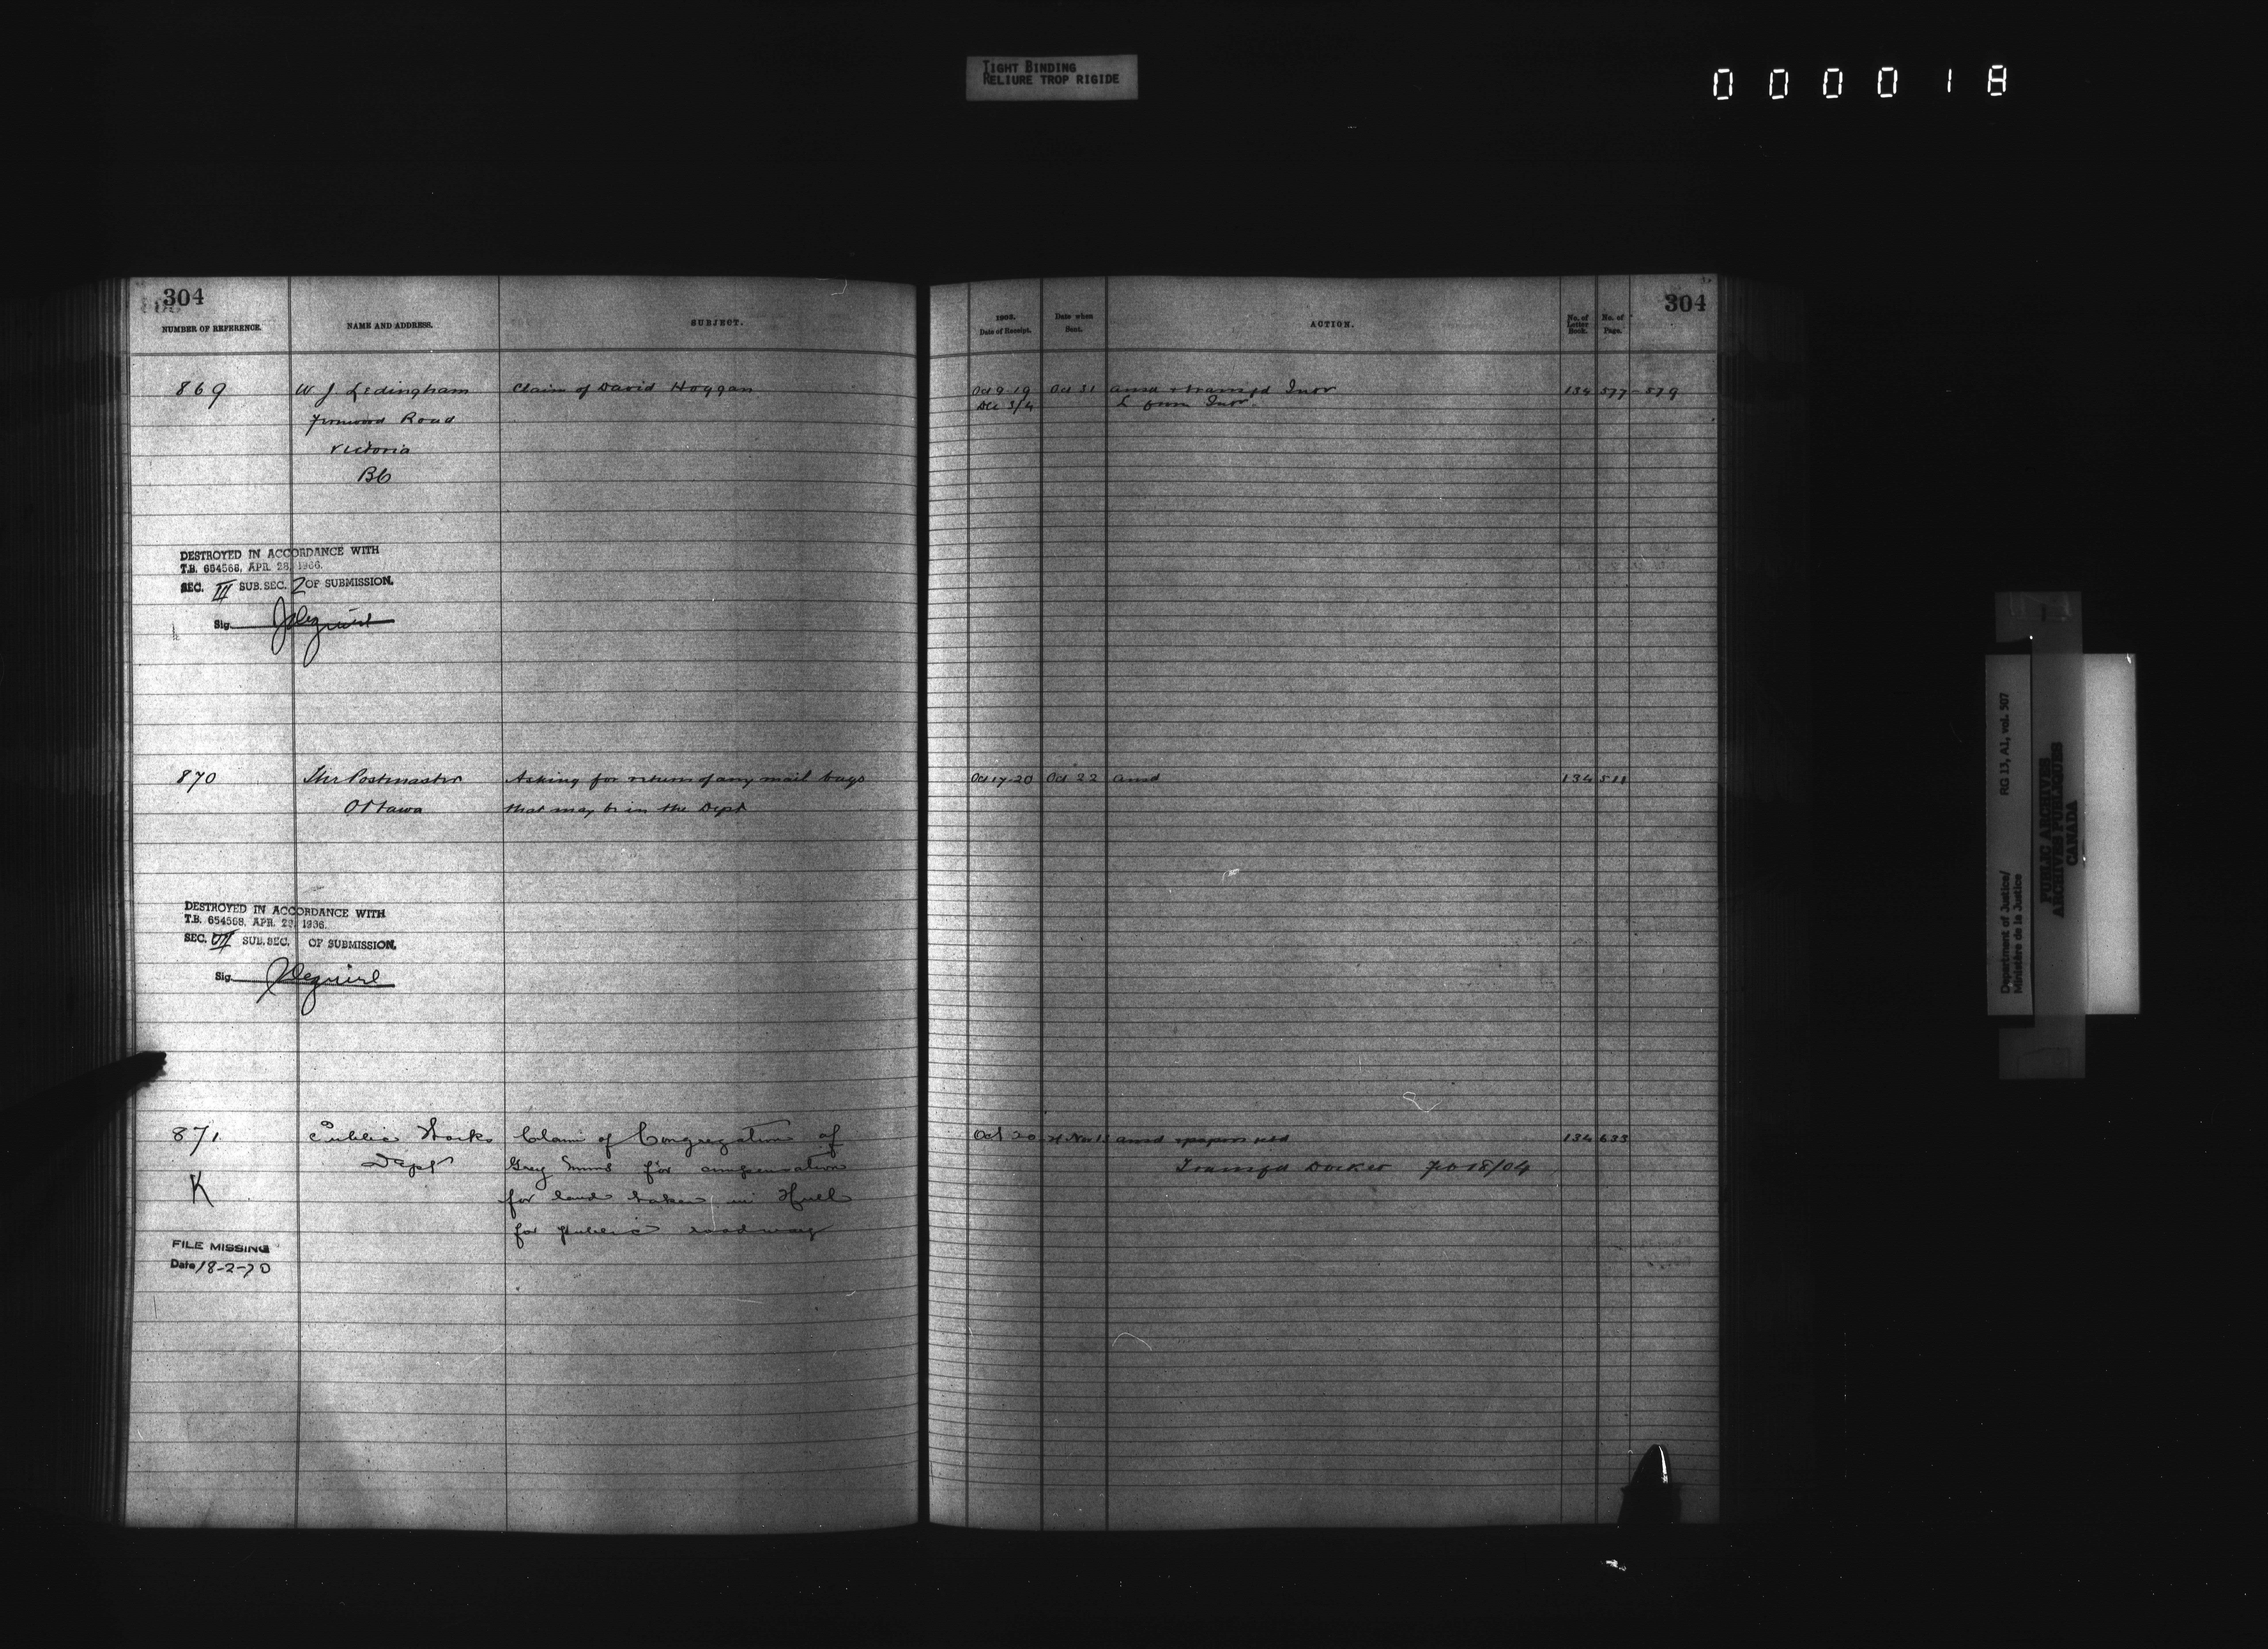 TIGHT BINDING
RELIURE TROP RIGIDE
000018
304
NUMBER OF REFERENCE.
NAME AND ADDRESS.
SUBJECT.
869
W J Ledingham
Road
Victoria
BC
Claim of David Hoggan
DESTROYED IN ACCORDANCE WITH
T.B. 654568, APR. 28, 1966.
SEC. III SUB.SEC. 2 OF SUBMISSION.
Sig.
870
The Postmaster
Ottawa
Asking for return of any mail bags
that may be in the Dept
DESTROYED IN ACCORDANCE WITH
T.B. 654568, APR. 28, 1966.
SEC. VII SUB.SEC. OF SUBMISSION.
Sig.
871
K
Public Works
Dept
Claim of Congregation of
Grey Nuns for compensation
for land taken in Hull
for public roadway
FILE MISSING
Date 18-2-70
304
1903.
Date of Receipt.
Date when
Sent.
ACTION.
No. of
Letter
Book.
No. of
Page.
Oct 9 19 Oct 31 ansd + transfd Inor 134 577-579
Dec 3/4 L from Inor
Oct 17-20 Oct 22 ansd 134 511
Oct 20 Nov ansd + papers 134 633
Transfd Docket Feb 18/04
Department of Justice/
Ministère de la Justice
RG 13, A1, vol. 507
PUBLIC ARCHIVES
ARCHIVES PUBLIQUES
CANADA